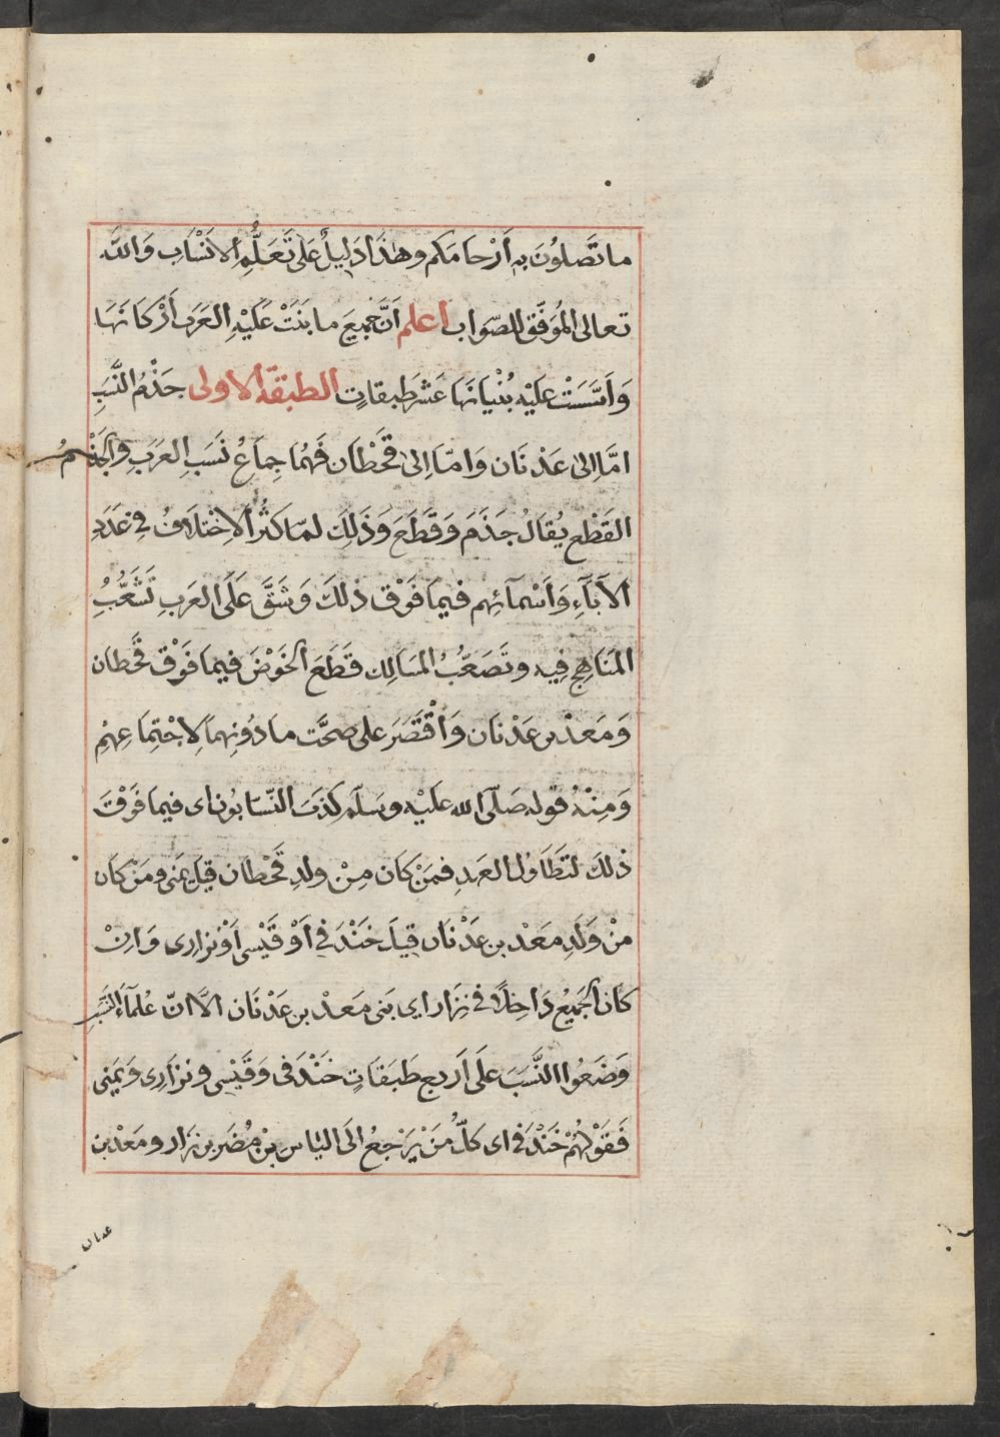 ما تَصِلُونَ بِهِ أَرْحَامَكم وهٰذَا دَلِيلٌ عَلى تَعَلُّمِ الانْسَابِ وَاللهُ
تعالى المُوَفّق للصّواب اعلم اَنَّ جَمِيعَ ما بَنَتْ عَلَيْهِ العَرَب أرْكَانَهَا
وَاَسَّسَتْ عَلَيْهِ بُنْيَانَهَا عَشَر طَبقاتٍ الطبقة الاولى جَذْمُ النَّسَبِ
امَّا اِلى عَدْنَان وَامّا اِلى قَحْطَان فَهُمَا جِمَاعُ نَسَبِ العَرَبِ والجَذْمُ
القَطْع يُقَالُ جَذَمَ وَقَطَعَ وَذَلِكَ لمّا كَثُرَ الاِخْتِلَافُ فِي عَدَدِ
الآبَآءِ وَاَسْمآئِهِم فيمَا فَوْقَ ذٰلكَ وَشَقَّ عَلَى العَرَبِ تَشَعُّبُ
المَنَاهِجِ فِيهِ وتَصَعُّبُ المَسَالِك قَطَعَ الخَوْضَ فيما فَوْقَ قَحْطان
وَمَعَدْ بن عَدْنَان وَاقْتَصَرَ على صحَّت ما دُونِهِما لاجْتِمَاعِهِمْ
وَمِنْهُ قوله صَلّى الله عليْهِ وسَلّم كذَبَ النّسّابُون اى فيما فَوْقَ
ذٰلكَ لتَطَاوُل العَهدِ فمَنْ كَان مِنْ ولدِ قَحْطان قيل يَمَنى ومَنْ كَان
مِنْ وَلَدِ مَعَدْ بن عَدْنَان قِيلَ خَنْدَفى اَوْ قَيْسى اَوْ نزارى وَاِنْ
كَان الجَمِيعُ دَاخِلًا فى نِزَار اى بَنى مَعَدْ بن عَدْنَان الاَّ انّ عُلمآءَ النَّسَبِ
وَضَعُوا النَّسَبَ عَلَى اَربع طَبَقَاتٍ خَنْدَفى وَقَيْسى ونزَارِى وَيَمَنى
فَقَوْلُهُمْ خَنْدَفى اى كلّ مَنْ يَرْجِعُ الَى اليَاس بْنِ مُضَر بن نِزَار ومَعَدْ بن
عدنان